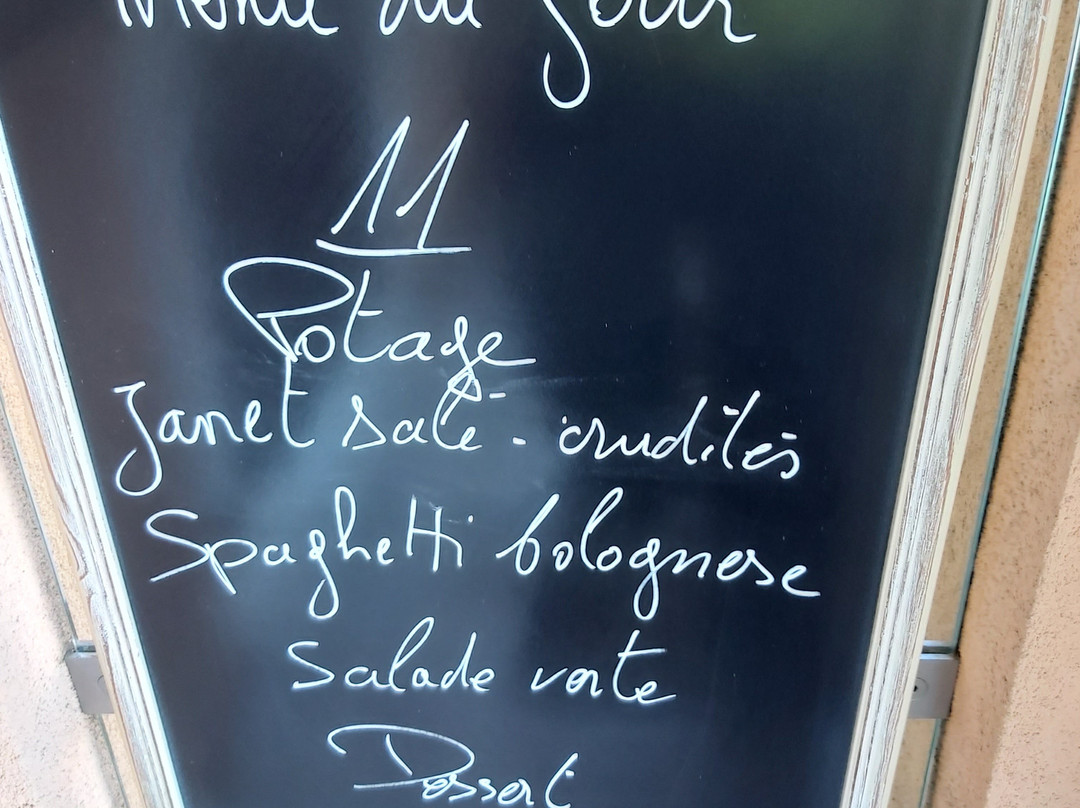 Menu du jour
11
Potage
Janet salé - crudités
Spaghetti bolognese
Salade verte
Dessert